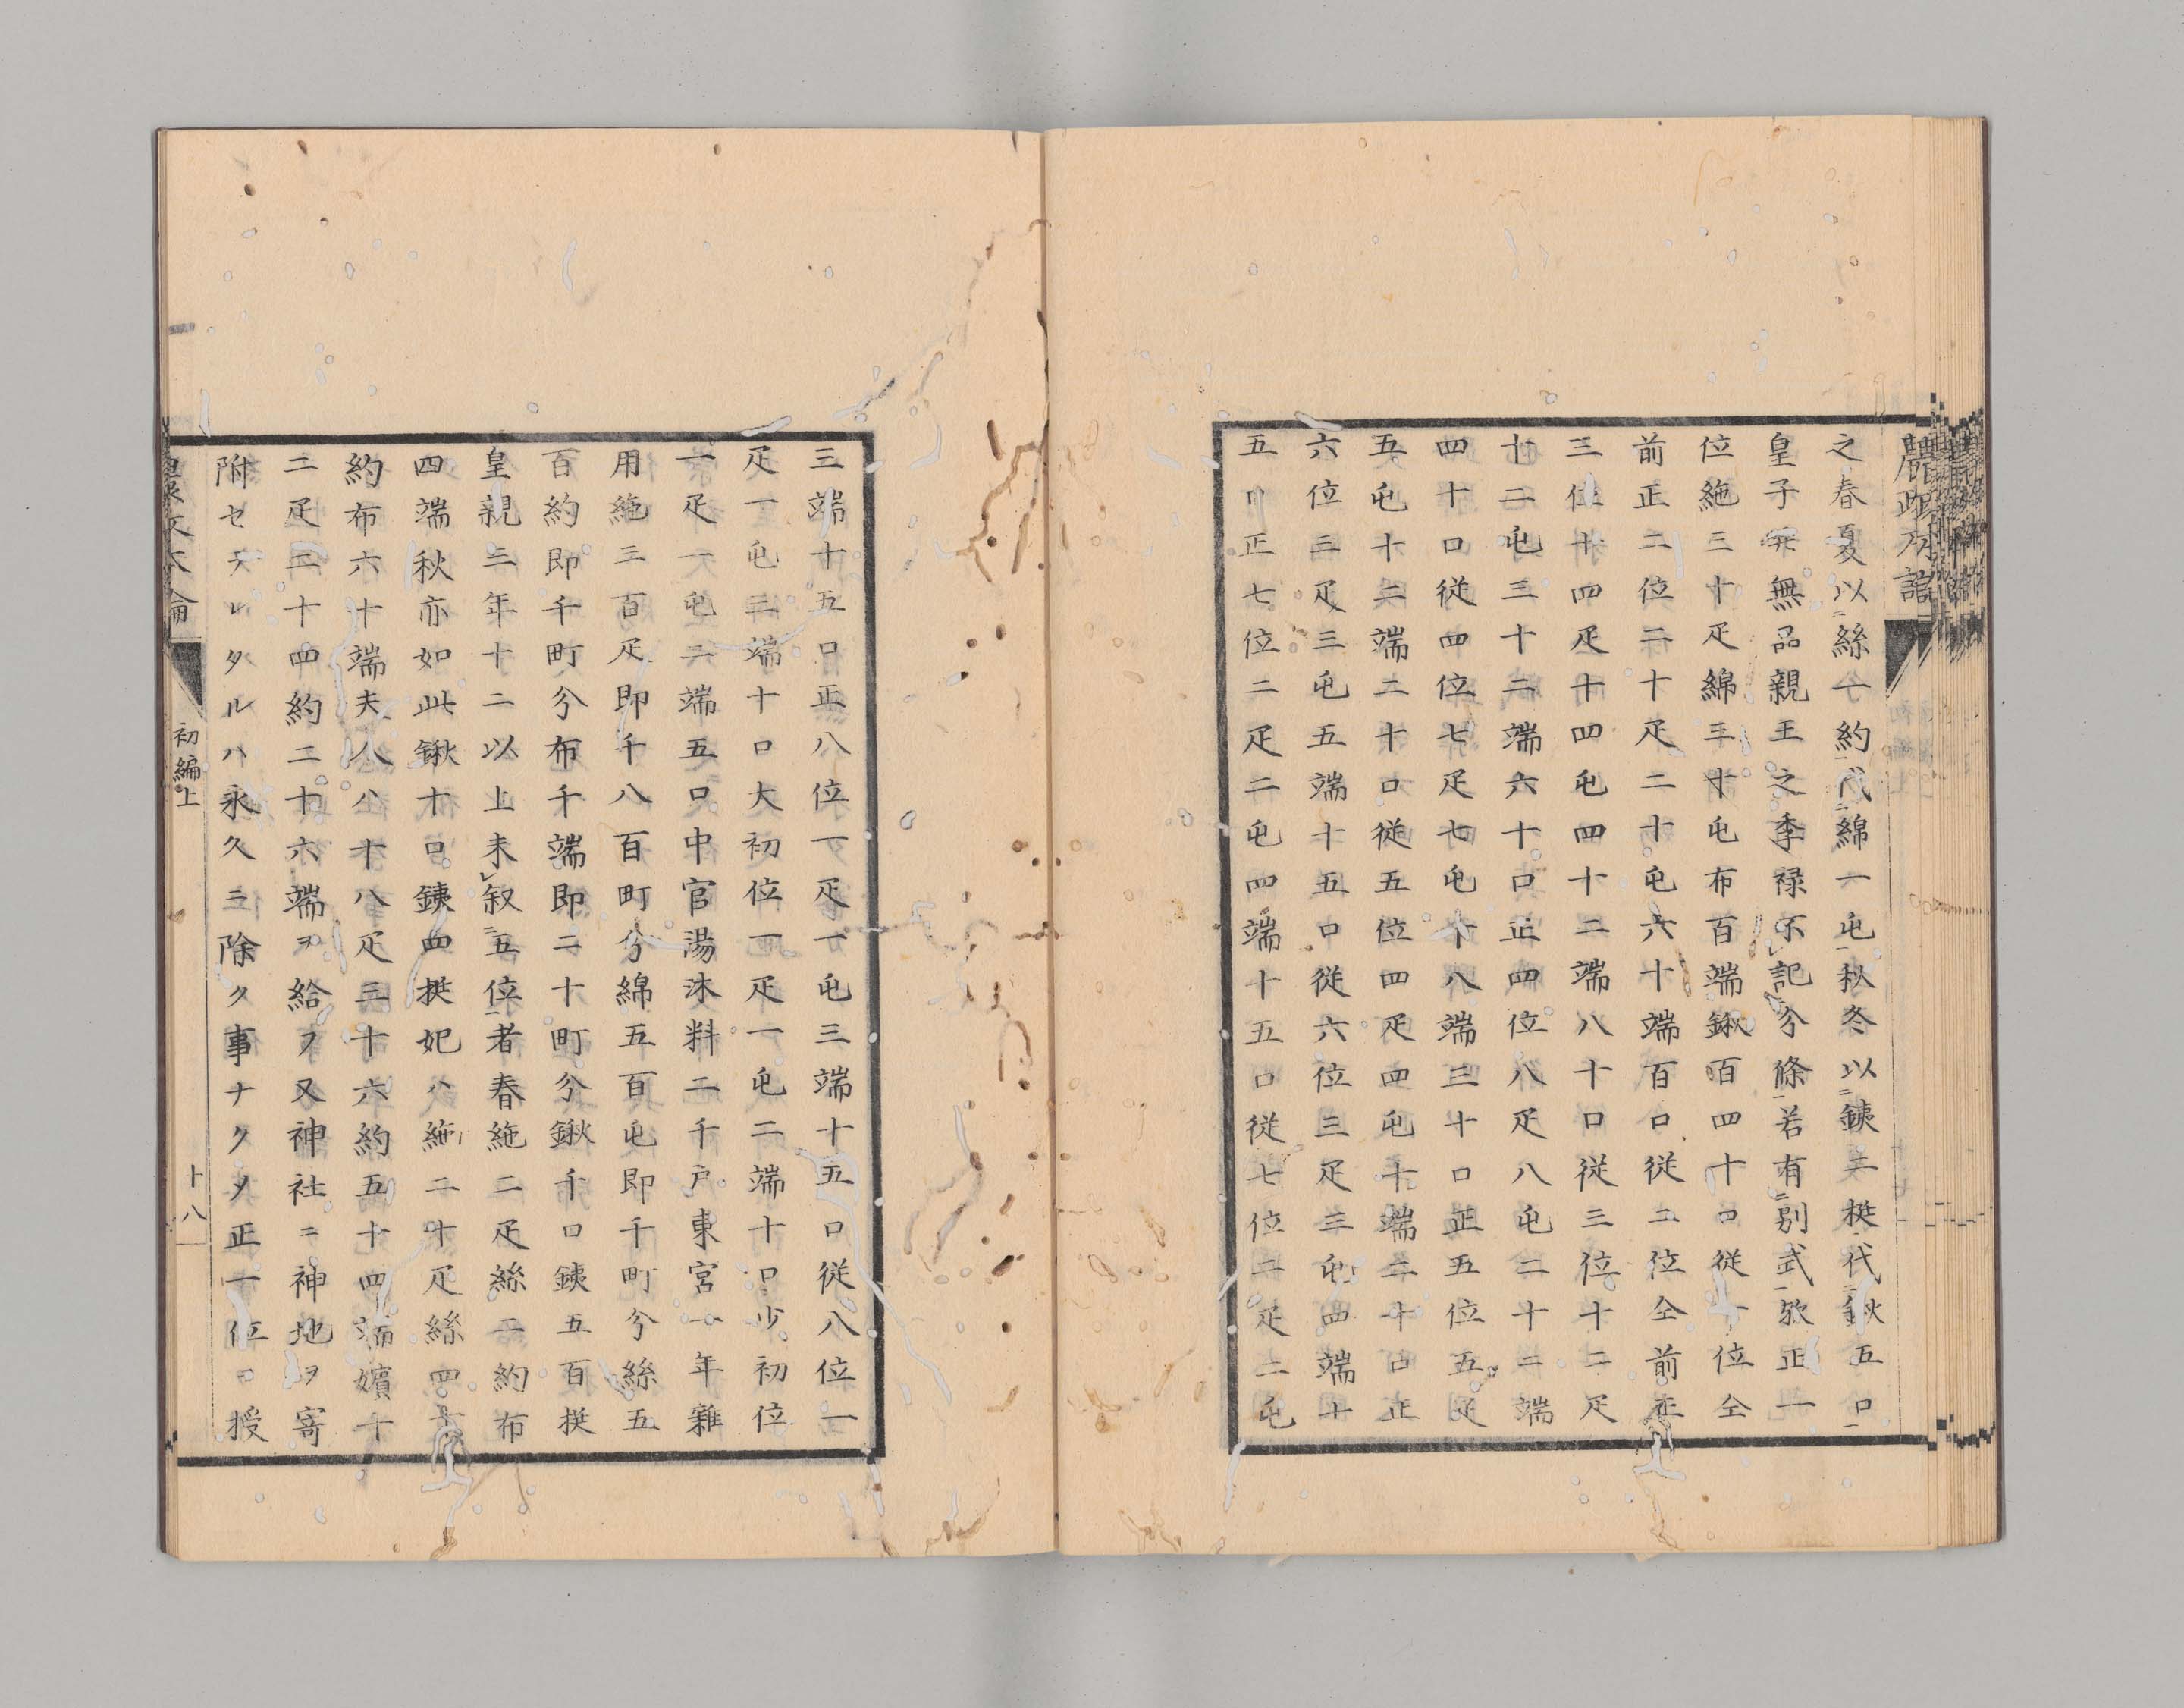 之春夏以絲一約代綿一屯秋冬以鐵二挺代鍬五口
皇子無品親王之季禄不記今條若有別式歟正一
位絁三十疋綿三十屯布百端鍬百四十口従一位仝
前正二位二十疋二十屯六十端百口従二位仝前正
三位十四疋十四屯四十二端八十口従三位十二疋
十二屯三十二端六十口正四位八疋八屯二十二端
四十口従四位七疋七屯十八端三十口正五位五疋
五屯十二端二十口従五位四疋四屯十端二十口正
六位三疋三屯五端十五口従六位三疋三屯四端十
五口正七位二疋二屯四端十五口従七位二疋二屯
三端十五口正八位一疋一屯三端十五口従八位一
疋一屯三端十口大初位一疋一屯二端十口少初位
一疋一屯二端五口中宮湯沐料二千戸東宮一年雜
用絁三百疋即千八百町分綿五百屯即千町分絲五
百約即千町分布千端即二十町分鍬千口鐵五百挺
皇親二年十二以上未叙五位者春絁二疋絲二約布
四端秋亦如此鍬十口鐵四挺妃ハ絁二十疋絲四十
約布六十端夫人ハ十八疋三十六約五十四端嬪十
二疋二十四約二十六端ヲ給フ又神社ニ神地ヲ寄
附セラレタルハ永久ニ除ク事ナク又正一位ヲ授
初編上
十八